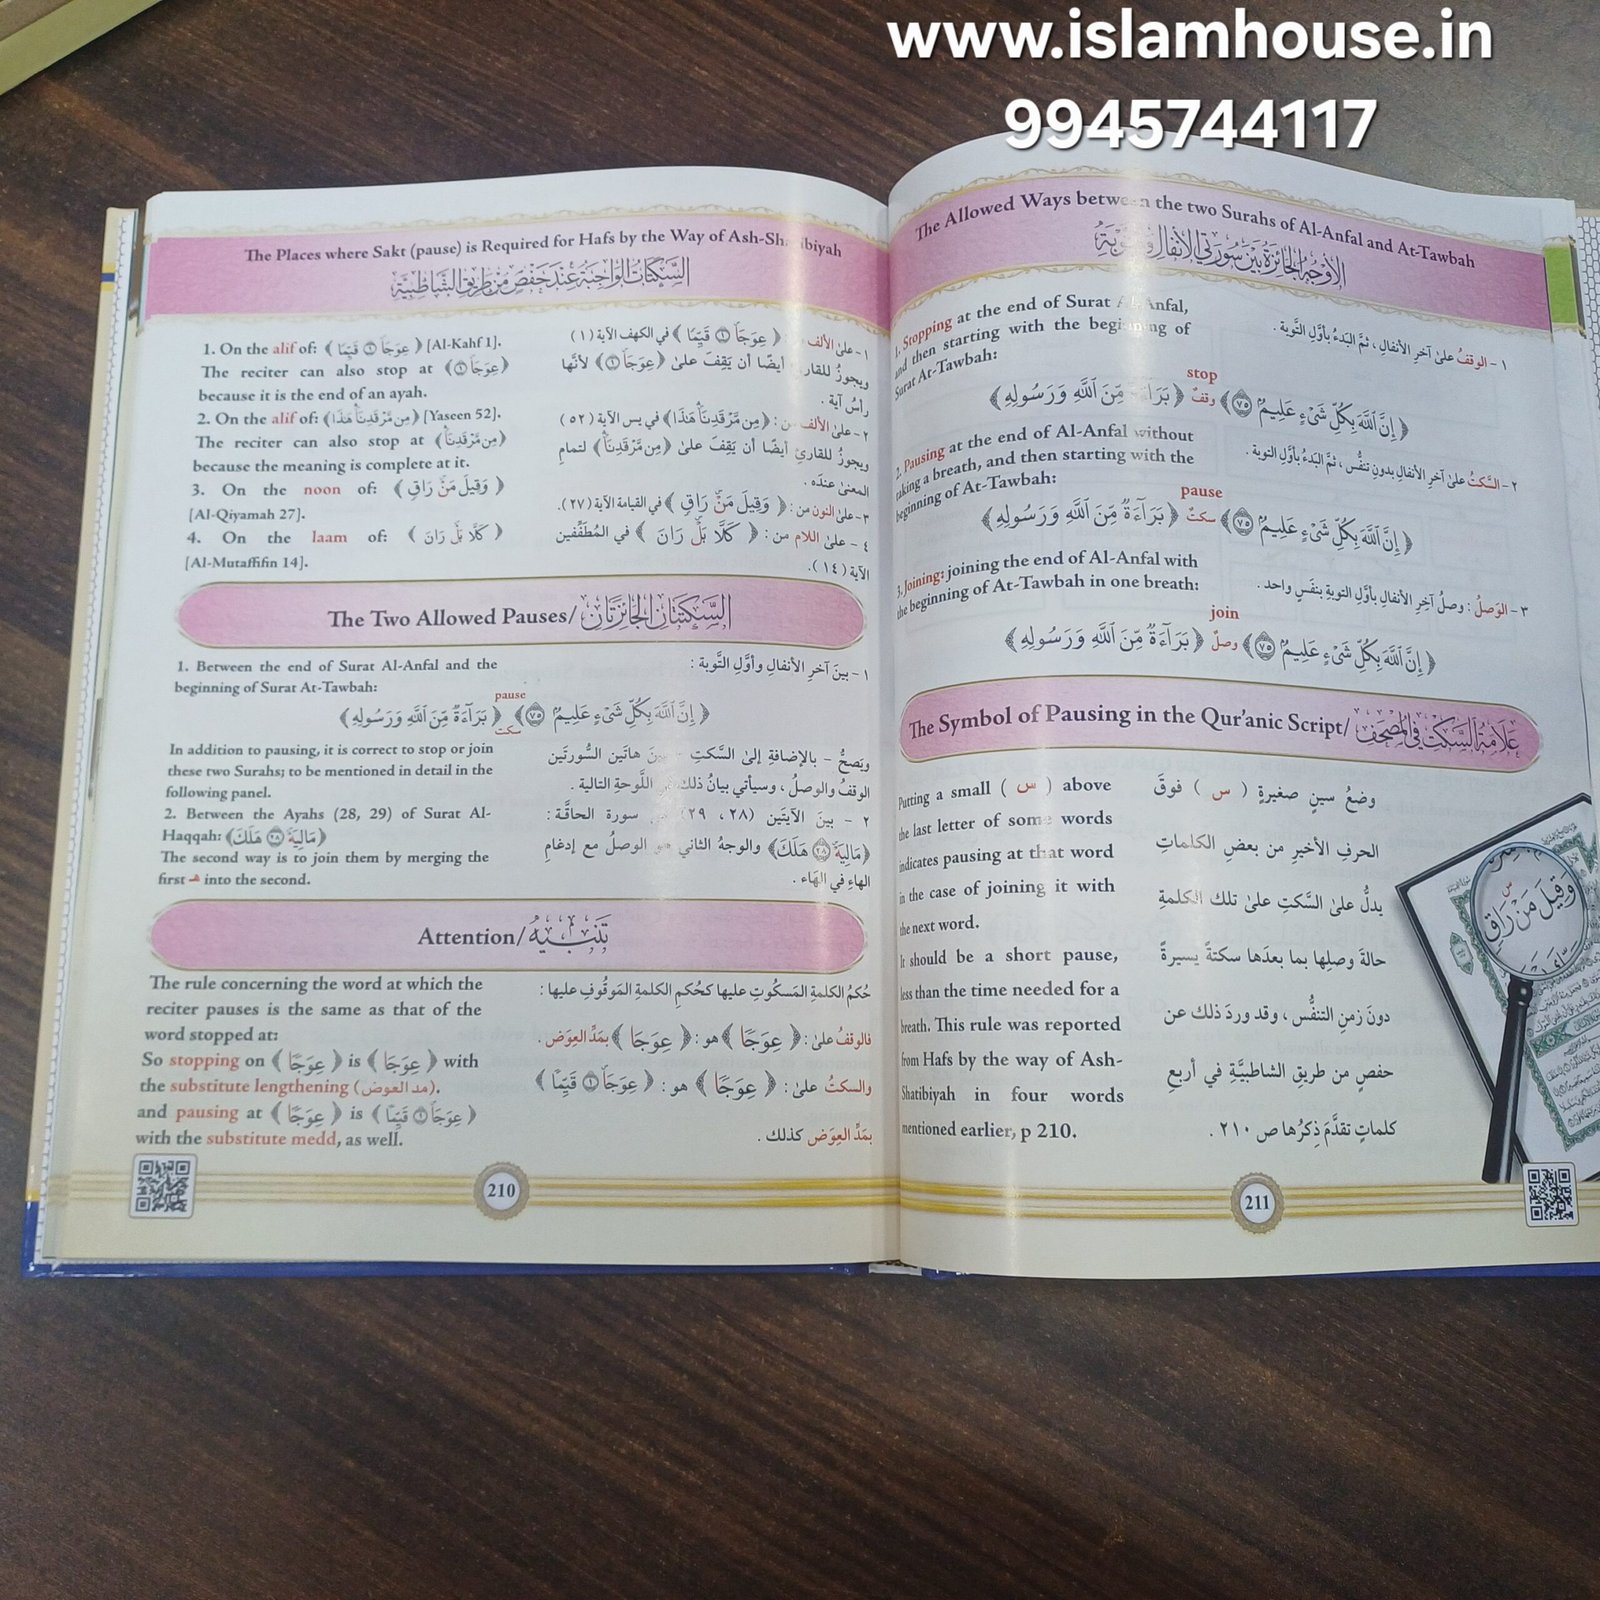 www.islamhouse.in
9945744117
The Places where Sakt (pause) is Required for Hafs by the Way of Ash-Shatibiyah
السَّكَتَاتُ الْوَاجِبَةُ عِنْدَ حَفْصٍ مِنْ طَرِيقِ الشَّاطِبِيَّةِ
1. On the alif of: ﴿ عِوَجَاۜ ١ قَيِّمًا ﴾ [Al-Kahf 1].
The reciter can also stop at ﴿عِوَجَاۜ ١﴾
because it is the end of an ayah.
2. On the alif of: ﴿مِن مَّرْقَدِنَاۜ هَٰذَا﴾ [Yaseen 52].
The reciter can also stop at ﴿مِن مَّرْقَدِنَاۜ﴾
because the meaning is complete at it.
3. On the noon of: ﴿ وَقِيلَ مَنْۜ رَاقٍ ﴾
[Al-Qiyamah 27].
4. On the laam of: ﴿ كَلَّا بَلْۜ رَانَ ﴾
[Al-Mutaffifin 14].
١ - على الألف : ﴿ عِوَجَاۜ ١ قَيِّمًا ﴾ في الكهف الآية (١)
ويجوزُ للقارئ أيضًا أن يَقِفَ على ﴿عِوَجَاۜ ١﴾ لأنَّها
رأسُ آية .
٢ - على الألف من : ﴿مِن مَّرْقَدِنَاۜ هَٰذَا﴾ في يس الآية (٥٢)
ويجوزُ للقارئِ أيضًا أن يَقِفَ على ﴿مِن مَّرْقَدِنَاۜ﴾ لتمامِ
المعنى عندَه .
٣ - على النون من : ﴿ وَقِيلَ مَنْۜ رَاقٍ ﴾ في القيامة الآية (٢٧).
٤ - على اللام من : ﴿ كَلَّا بَلْۜ رَانَ ﴾ في المُطَفِّفين
الآية (١٤).
The Two Allowed Pauses/ السَّكْتَتَانِ الْجَائِزَتَانِ
1. Between the end of Surat Al-Anfal and the
beginning of Surat At-Tawbah:
١ - بينَ آخرِ الأنفالِ وأوَّلِ التَّوبة :
pause
﴿ إِنَّ ٱللَّهَ بِكُلِّ شَىْءٍ عَلِيمٌۢ ٧٥﴾ سكت ﴿ بَرَآءَةٌ مِّنَ ٱللَّهِ وَرَسُولِهِ﴾
In addition to pausing, it is correct to stop or join
these two Surahs; to be mentioned in detail in the
following panel.
2. Between the Ayahs (28, 29) of Surat Al-
Haqqah: ﴿مَالِيَهْۜ ٢٨ هَلَكَ﴾
The second way is to join them by merging the
first هـ into the second.
ويَصحُّ - بالإضافةِ إلى السَّكتِ - بينَ هاتَين السُّورتَين
الوقفُ والوصلُ ، وسيأتي بيانُ ذلك في اللَّوحةِ التالية .
٢ - بينَ الآيتَين (٢٨، ٢٩) من سورة الحاقَّة :
﴿مَالِيَهْۜ ٢٨ هَلَكَ﴾ والوجهُ الثاني هو الوصلُ مع إدغامِ
الهاءِ في الهَاء .
Attention/ تَنْبِيهٌ
The rule concerning the word at which the
reciter pauses is the same as that of the
word stopped at:
So stopping on ﴿ عِوَجَا ﴾ is ﴿ عِوَجَا ﴾ with
the substitute lengthening (مد العوض).
and pausing at ﴿ عِوَجَا ﴾ is ﴿ عِوَجَاۜ ١ قَيِّمًا ﴾
with the substitute medd, as well.
حُكمُ الكلمةِ المَسكُوتِ عليها كحُكمِ الكلمةِ المَوقُوفِ عليها :
فالوقفُ على : ﴿ عِوَجَا ﴾ هو : ﴿ عِوَجَا ﴾ بمَدِّ العِوَض .
والسكتُ على : ﴿ عِوَجَا ﴾ هو : ﴿ عِوَجَاۜ ١ قَيِّمًا ﴾
بمَدِّ العِوَض كذلك .
210
The Allowed Ways between the two Surahs of Al-Anfal and At-Tawbah
الأَوْجُهُ الْجَائِزَةُ بَيْنَ سُورَتَيِ الأَنْفَالِ وَالتَّوْبَةِ
1. Stopping at the end of Surat Al-Anfal,
and then starting with the beginning of
Surat At-Tawbah:
١ - الوقفُ على آخرِ الأنفالِ ، ثمَّ البَدءُ بأوَّلِ التَّوبة .
stop
﴿ إِنَّ ٱللَّهَ بِكُلِّ شَىْءٍ عَلِيمٌۢ ٧٥﴾ وقفٌ ﴿ بَرَآءَةٌ مِّنَ ٱللَّهِ وَرَسُولِهِ﴾
2. Pausing at the end of Al-Anfal without
taking a breath, and then starting with the
beginning of At-Tawbah:
٢ - السَّكتُ على آخرِ الأنفالِ بدونِ تنفُّس ، ثمَّ البَدءُ بأوَّلِ التوبة .
pause
﴿ إِنَّ ٱللَّهَ بِكُلِّ شَىْءٍ عَلِيمٌۢ ٧٥﴾ سكتٌ ﴿ بَرَآءَةٌ مِّنَ ٱللَّهِ وَرَسُولِهِ﴾
3. Joining: joining the end of Al-Anfal with
the beginning of At-Tawbah in one breath:
٣ - الوَصلُ : وصلُ آخِرِ الأنفالِ بأوَّلِ التوبةِ بنفَسٍ واحد .
join
﴿ إِنَّ ٱللَّهَ بِكُلِّ شَىْءٍ عَلِيمٌۢ ٧٥﴾ وصلٌ ﴿ بَرَآءَةٌ مِّنَ ٱللَّهِ وَرَسُولِهِ﴾
The Symbol of Pausing in the Qur'anic Script/ عَلَامَةُ السَّكْتِ فِي الْمُصْحَفِ
Putting a small ( س ) above
the last letter of some words
indicates pausing at that word
in the case of joining it with
the next word.
It should be a short pause,
less than the time needed for a
breath. This rule was reported
from Hafs by the way of Ash-
Shatibiyah in four words
mentioned earlier, p 210.
وضعُ سينٍ صغيرةٍ ( س ) فوقَ
الحرفِ الأخيرِ من بعضِ الكلماتِ
يدلُّ على السَّكتِ على تلك الكلمةِ
حالةَ وصلِها بما بعدَها سكتةً يسيرةً
دونَ زمنِ التنفُّس ، وقد وردَ ذلك عن
حفصٍ من طريقِ الشاطبيَّةِ في أربعِ
كلماتٍ تقدَّمَ ذِكرُها ص ٢١٠ .
وَقِيلَ مَنْۜ رَاقٍ
211